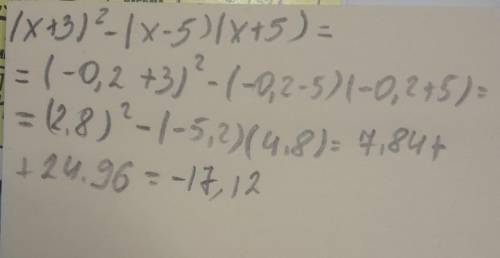 (x+3)²-(x-5)(x+5)=
=(-0,2+3)²-(-0,2-5)(-0,2+5)=
=(2,8)²-(-5,2)(4,8)=7,84+
+24.96=-17,12